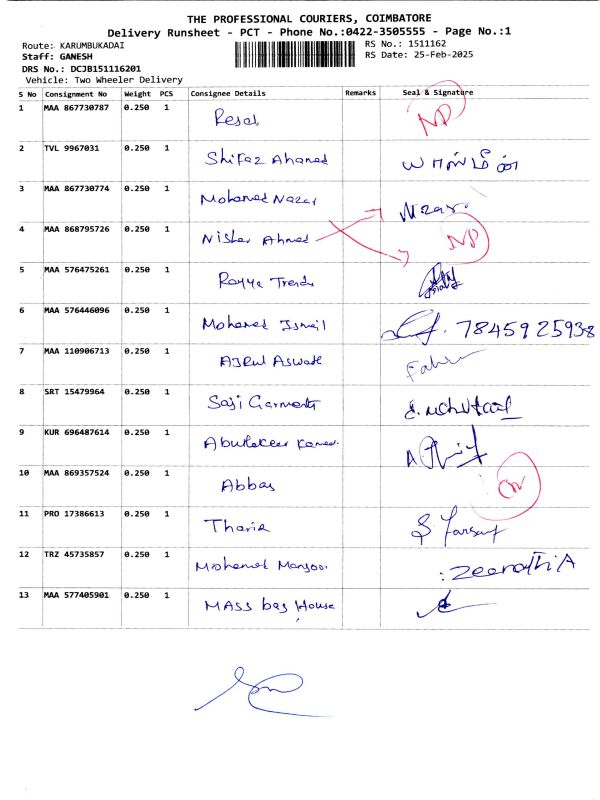 THE PROFESSIONAL COURIERS, COIMBATORE
Delivery Runsheet - PCT - Phone No.:0422-3505555 - Page No.:1
Route: KARUMBUKADAI
RS No.: 1511162
Staff: GANESH
RS Date: 25-Feb-2025
DRS No.: DCJB151116201
Vehicle: Two Wheeler Delivery
S No Consignment No Weight PCS Consignee Details Remarks Seal & Signature
1 MAA 867730787 0.250 1
2 TVL 9967031 0.250 1 Shifaz Ahamed யாஸ்மீன்
3 MAA 867730774 0.250 1 Mohamed Nazar Nazar
4 MAA 868795726 0.250 1 Nisher Ahmed
5 MAA 576475261 0.250 1 Rayya Trends
6 MAA 576446096 0.250 1 Mohamed Ismail 7845925938
7 MAA 110906713 0.250 1
8 SRT 15479964 0.250 1 Saji Garments
9 KUR 696487614 0.250 1
10 MAA 869357524 0.250 1 Abbas
11 PRO 17386613 0.250 1
12 TRZ 45735857 0.250 1 Mohamed Mansoor
13 MAA 577405901 0.250 1 MASS bag House